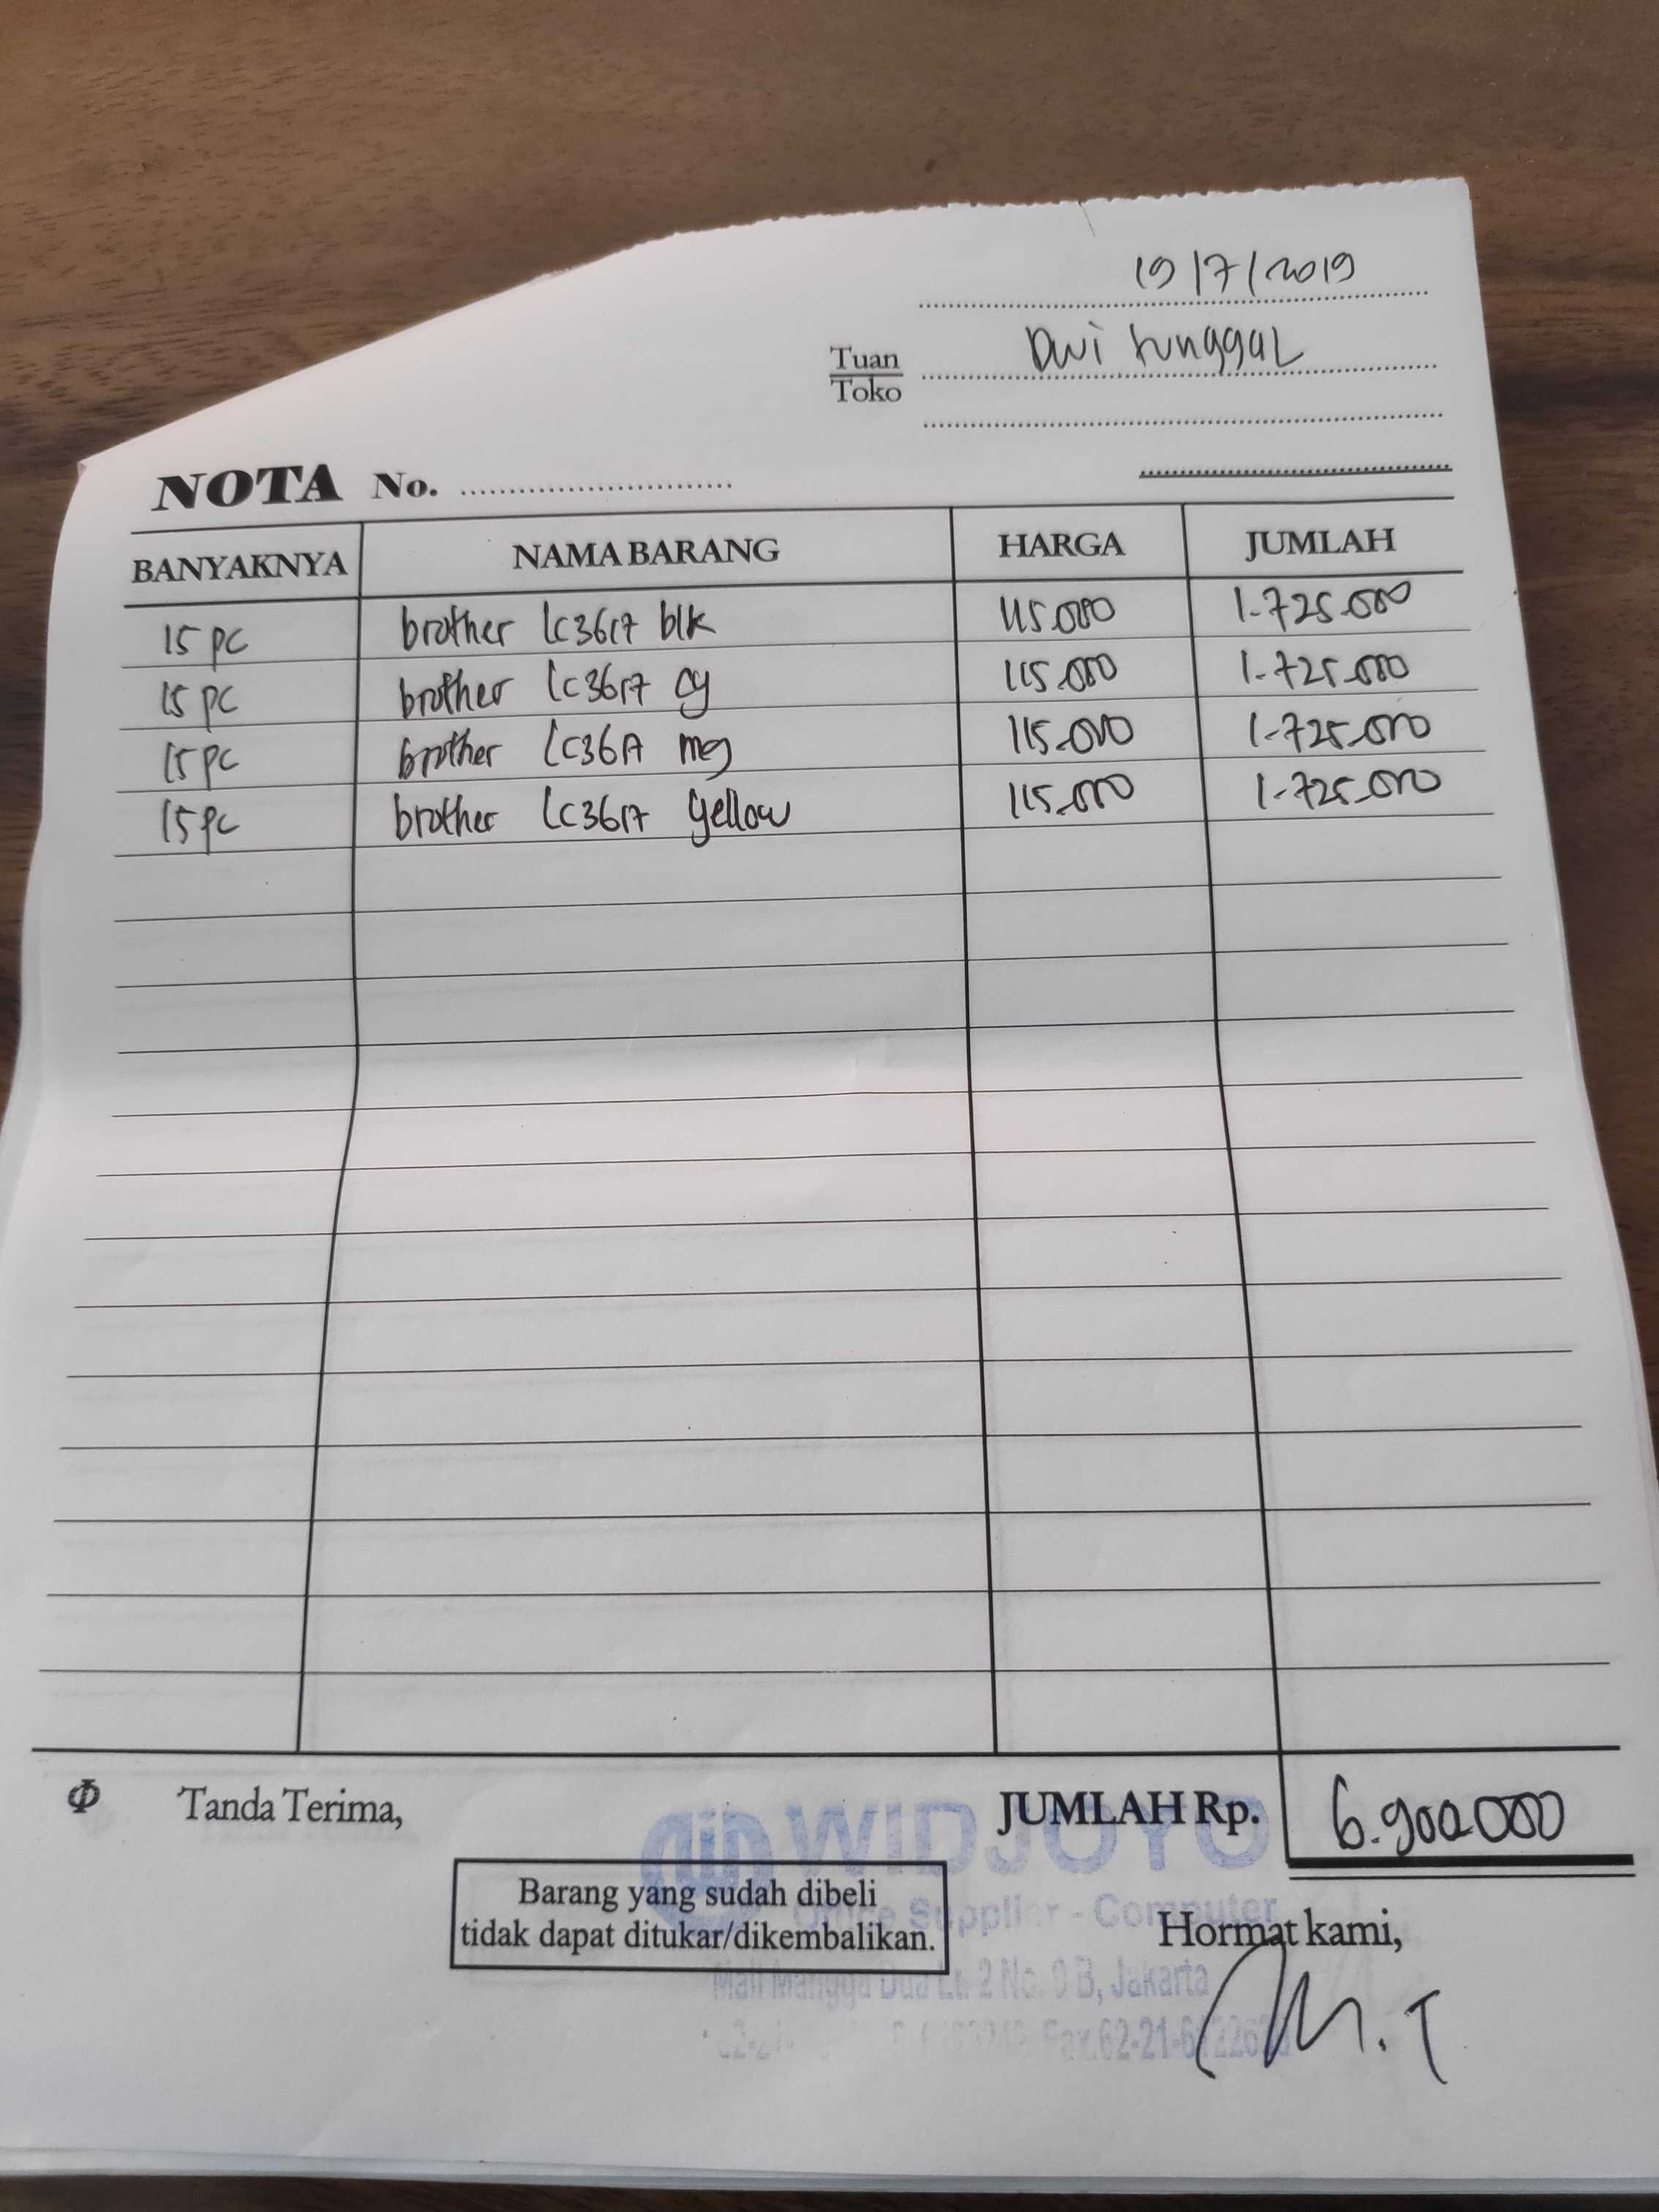 19/7/2019
Tuan Dwi tunggal
Toko
NOTA No.
BANYAKNYA NAMA BARANG HARGA JUMLAH
15 pc brother lc3617 blk 115.000 1.725.000
15 pc brother lc3617 cy 115.000 1.725.000
15 pc brother lc3617 mg 115.000 1.725.000
15 pc brother lc3617 yellow 115.000 1.725.000
Tanda Terima, JUMLAH Rp. 6.900.000
WIDJOYO
Barang yang sudah dibeli
Office Supplier - Computer
tidak dapat ditukar/dikembalikan.
Hormat kami,
Mall Mangga Dua Lt. 2 No. 9 B, Jakarta
Fax.62-21-
M.T